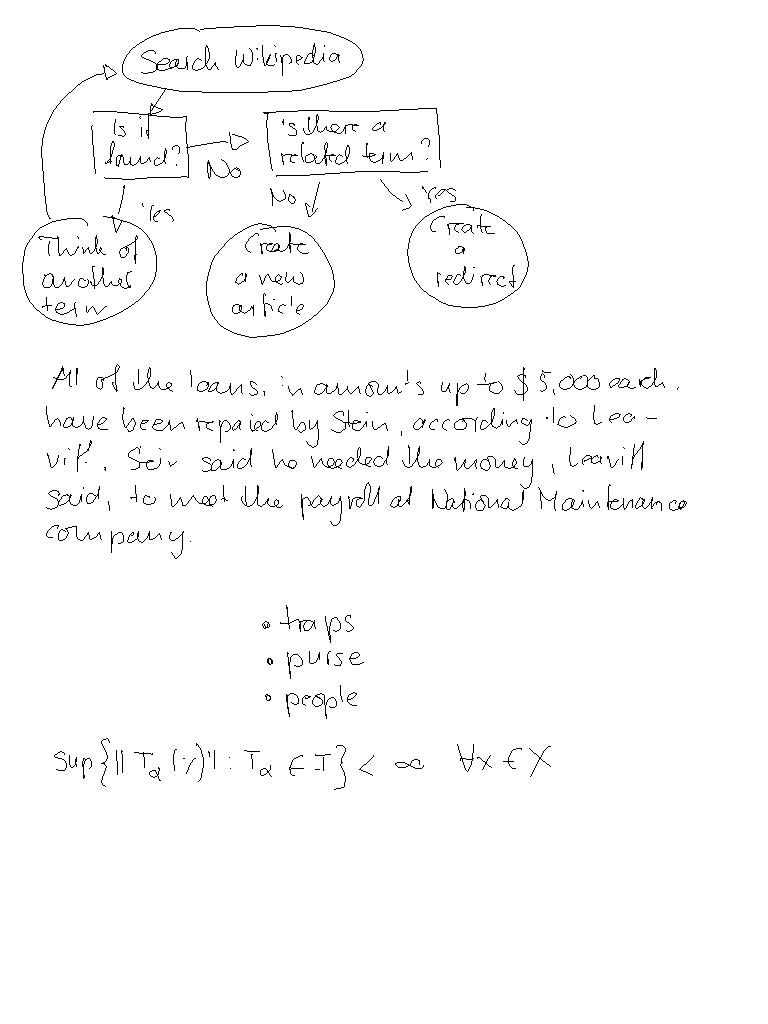 Search Wikipedia
Is it
found?
No
Is there a
related term?
Yes
No
Yes
Think of
another
term
Create
a new
article
Create
a
redirect
All of the loans, in amounts up to $ 5,000 each,
have been repaied by Stein, according to Lea-
vitt. Stein said he needed the money, Leavitt
said, to meet the payroll at National Maintenance
company.
• traps
• purse
• people
sup{|| Tα (x) || : Tα ∈ T} < ∞ ∀x ∈ X